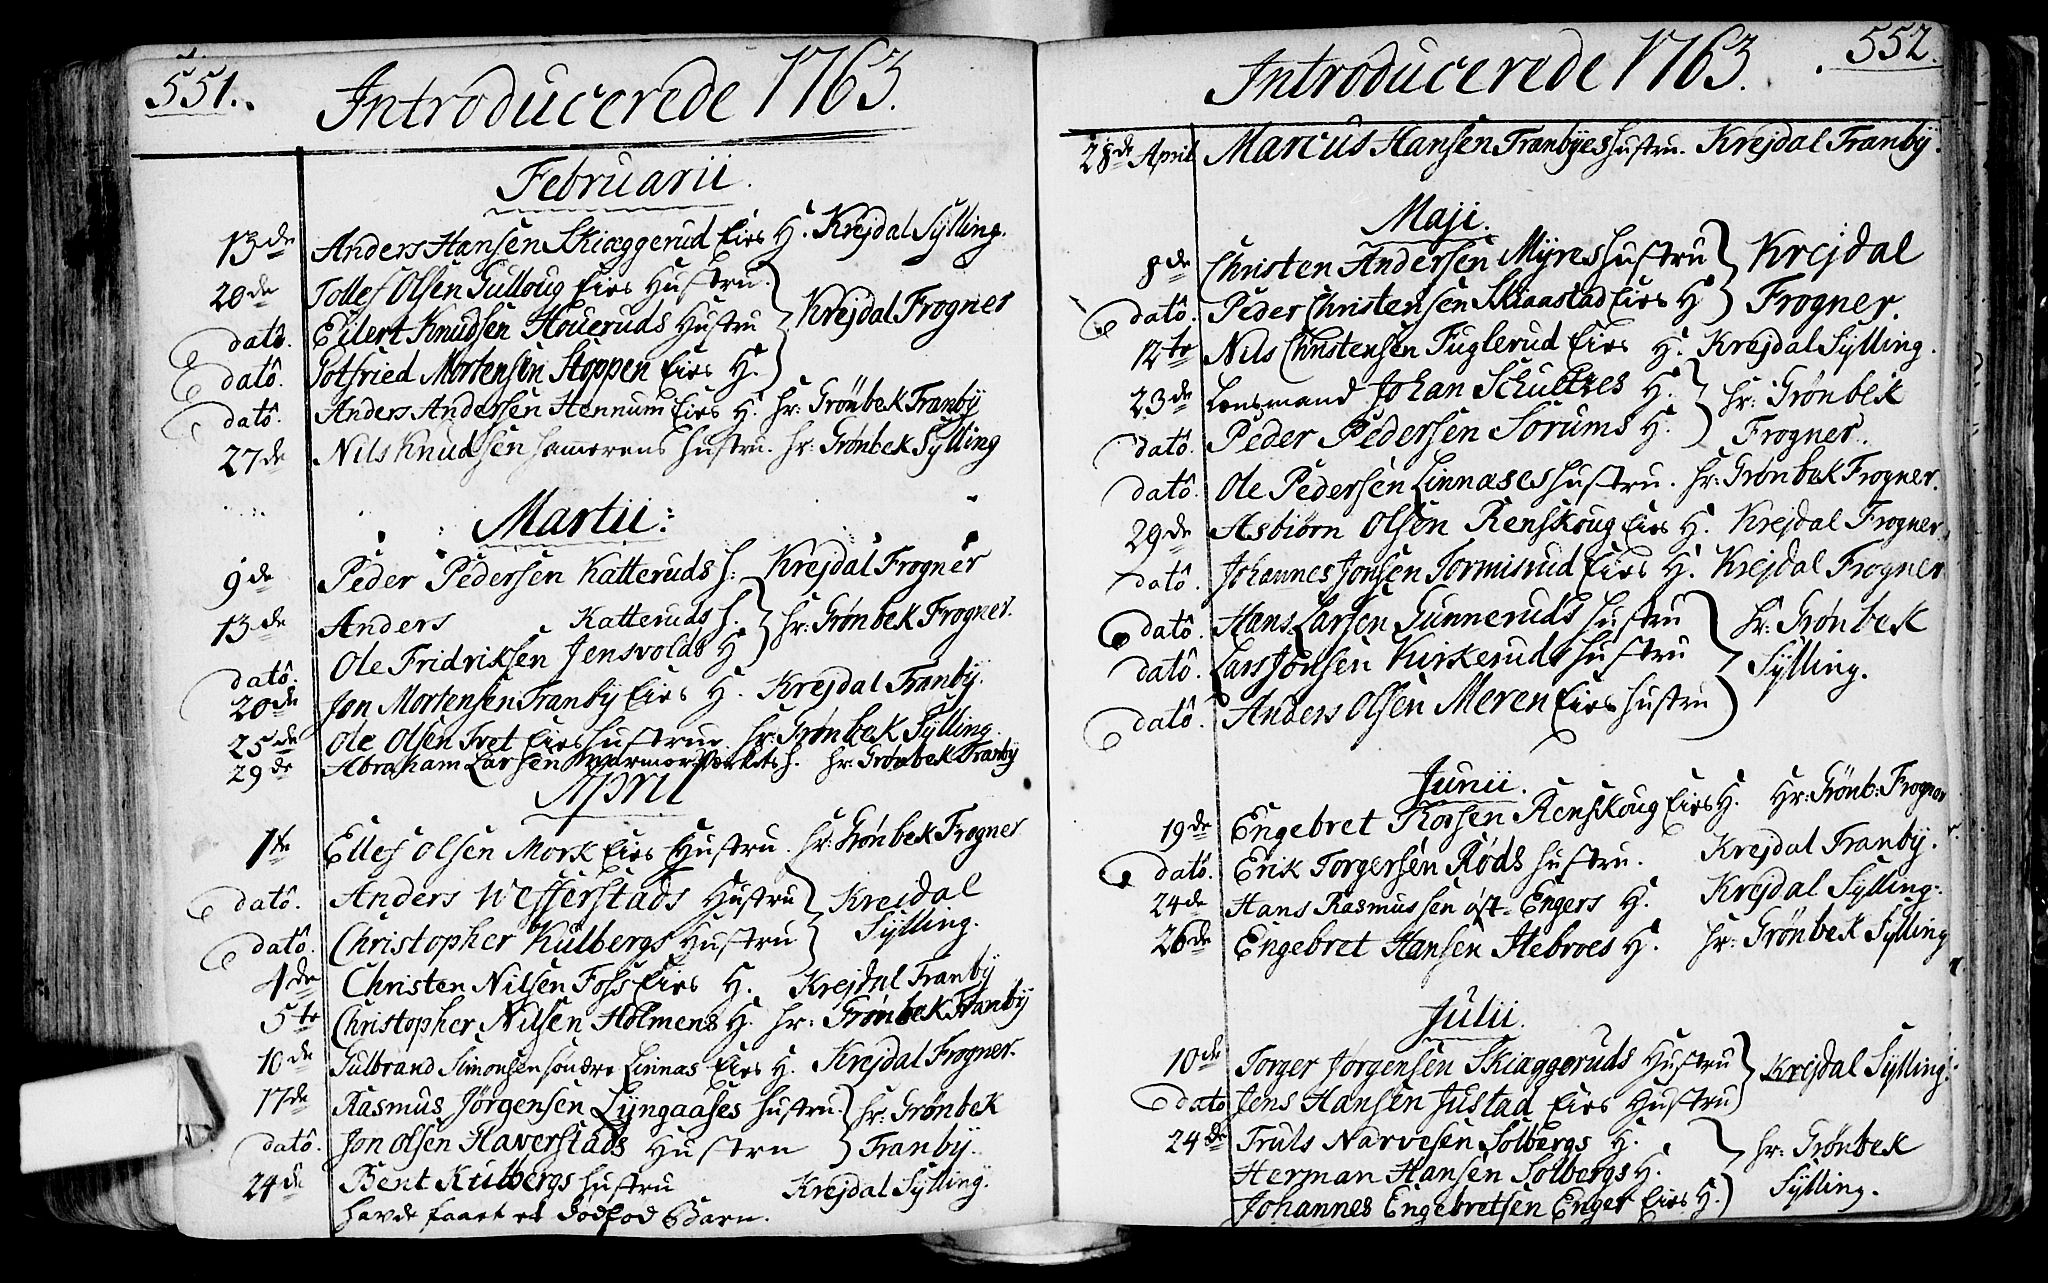 551.
Introducerede 1763.
Februarii.
13de Anders Hansen Skiæggerud Eies H. Krejdal Sylling.
20de Tollef Olsen Gulloug Eies Hustru.
dato. Eilert Knudsen Houeruds Hustru Krejdal Frogner
dato. Gotfried Mortensen Stoppen Eies H.
dato. Anders Andersen Hennum Eies H. hr: Grönbek Tranby
27de Nils Knudsen Hamerens Hustru. hr: Grönbek Sylling
Martii:
9de Peder Pedersen Katteruds H. Krejdal Frogner
13de Anders Katteruds H. hr: Grönbek Frogner.
dato. Ole Fridriksen Jensvolds H
20de Jon Mortensen Tranby Eies H. Krejdal Tranby.
25de Ole Olsen Tvet Eies Hustrue. hr: Grönbek Sylling.
29de Abraham Larsen H. hr: Grönbek Tranby
April
1te Ellef Olsen Mork Eies Hustru. hr: Grönbek Frogner
dato. Anders Wefferstads Hustru Krejdal
dato. Christopher Kulbergs Hustru Sylling.
4de Christen Nilsen Foss Eies H. Krejdal Tranby
5te Christopher Nilsen Holmens H. hr: Grönbek Tranby
10de Gulbrand Simonsen söndre Linnas Eies H. Krejdal Frogner.
17de Rasmus Jörgensen Lyngaases Hustru. hr: Grönbek
dato. Jon Olsen Haverstads Hustru Tranby.
24de Bent Kulbergs Hustru Krejdal Sylling.
havde faaet et dödfød Barn.
552.
Introducerede 1763.
28de April Marcus Hansen Tranbyes Hustru. Krejdal Tranby.
Maji.
8de Christen Andersen Myres Hustru Krejdal
dato. Peder Christensen Skiaastad Eies H Frogner.
12te Nils Christensen Fuglerud Eies H. Krejdal Sylling.
23de Lensmand Johan Schultzes H. hr: Grönbek
dato. Peder Pedersen Sorums H. Frogner.
dato. Ole Pedersen Linnases Hustru. hr: Grönbek Frogner.
29de Asbiörn Olsen Renskoug Eies H. Krejdal Frogner.
dato. Johannes Jonsen Tormisrud Eies H. Krejdal Frogner
dato. Hans Larsen Gunneruds Hustru hr: Grönbek
dato. Lars Jonsen Kirkeruds Hustru Sylling.
dato. Anders Olsen Meren Eies Hustru
Junii.
19de Engebret Renskoug Eies H. Hr: Grönb: Frogner
dato. Erik Torgersen Röds Hustru. Krejdal Tranby.
24de Hans Rasmussen öst-Engers H. Krejdal Sylling.
26de Engebret Hansen Hebroes H. hr: Grönbek Sylling
Julii.
10de Torger Jörgensen Skiæggeruds Hustru Krejdal Sylling.
dato Jens Hansen Justad Eies Hustru
24de Truls Narvesen Solbergs H. hr: Grönbek
Herman Hansen Solbergs H. Sylling.
Johannes Engebretsen Enger Eies H.